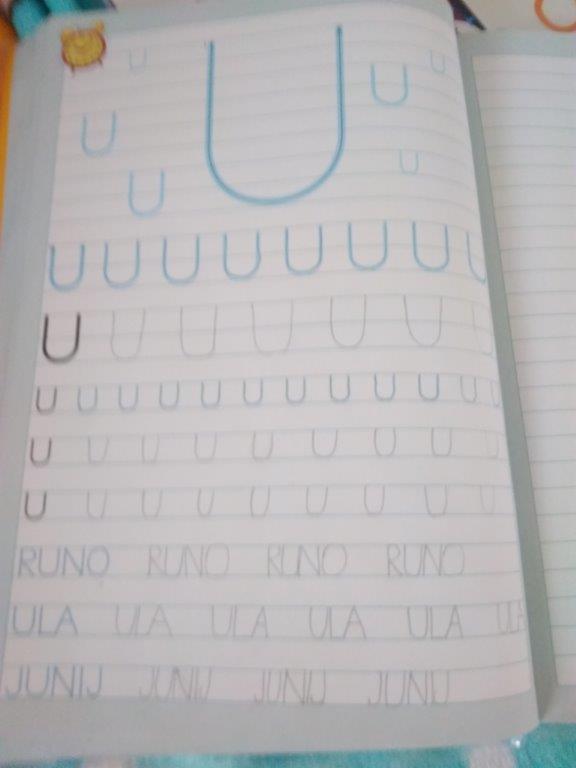 U U U U
U
U U
U U U U U U U U
U U U U U U U
U U U U U U U U U U U U
U U U U U U U U U
U U U U U U U U U
RUNO RUNO RUNO RUNO
ULA ULA ULA ULA ULA ULA
JUNIJ JUNIJ JUNIJ JUNIJ